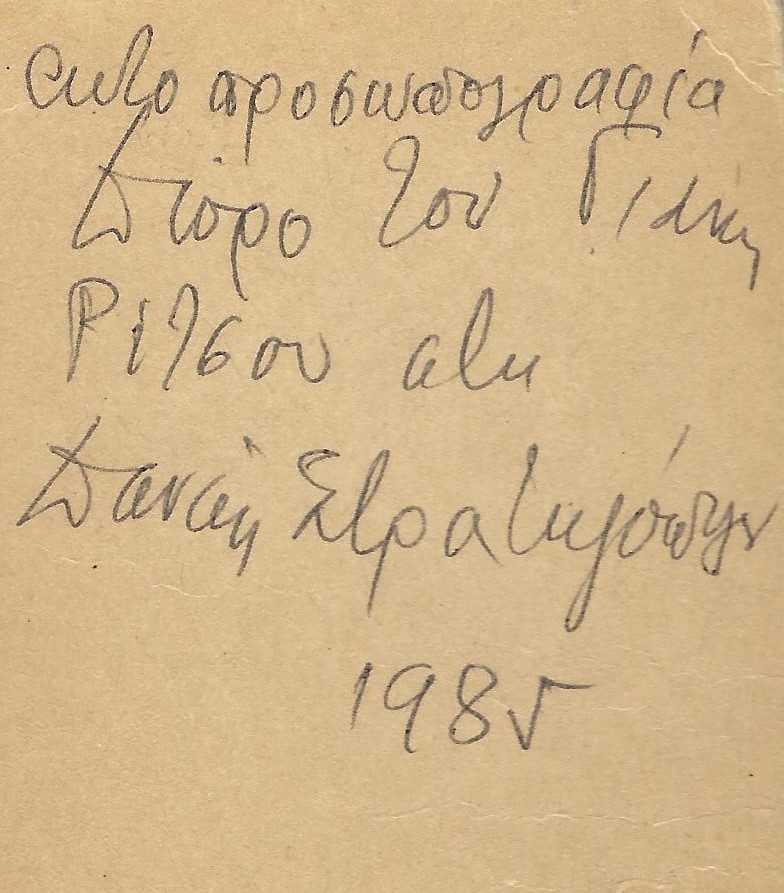 αυτοπροσωπογραφία
Δώρο του Γιάννη
Ρίτσου στη
Δανάη Στρατηγοπούλου
1985